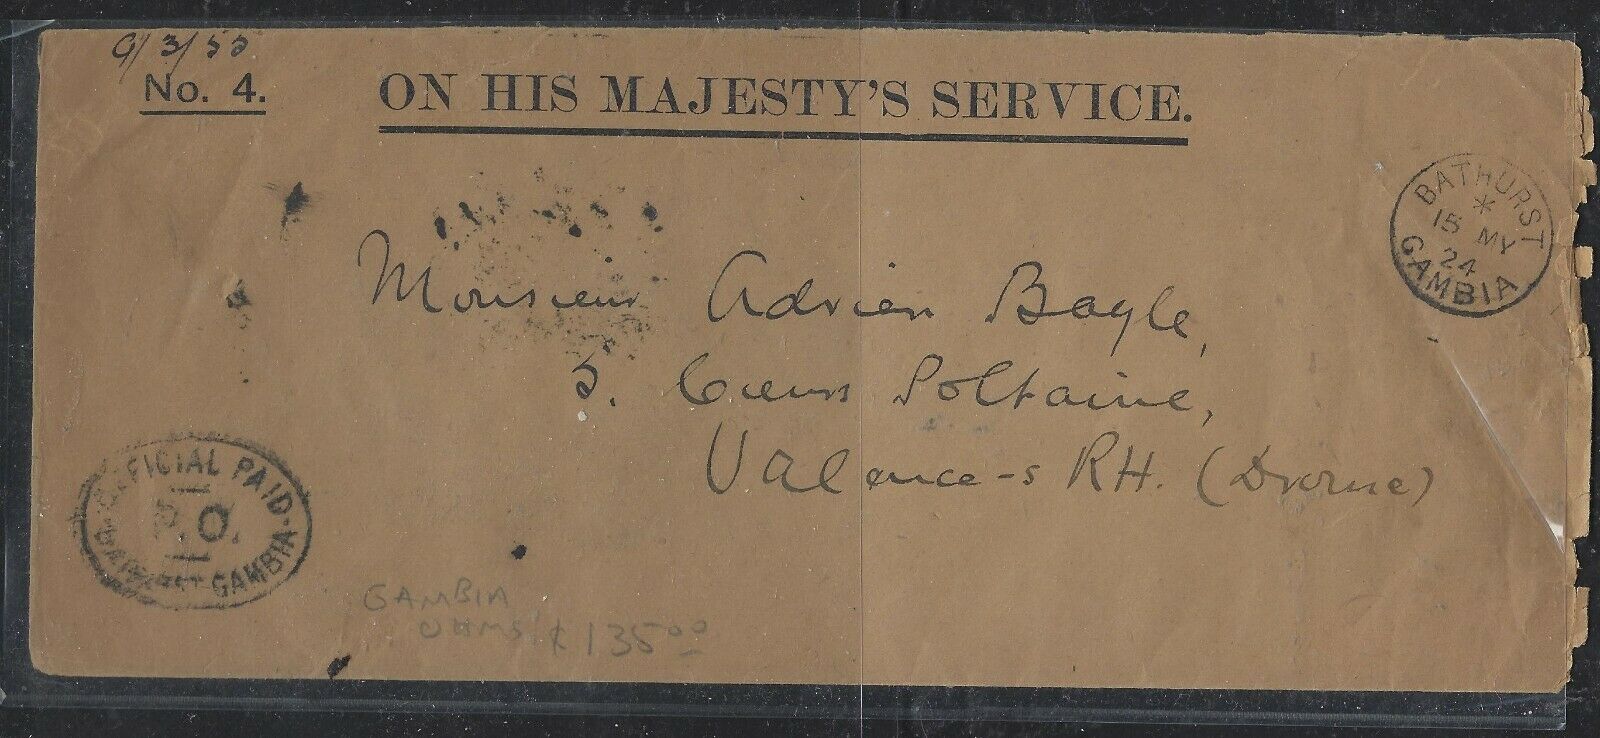 G/3/55
No. 4.
ON HIS MAJESTY'S SERVICE.
BATHURST
*
15 MY
24
GAMBIA
Monsieur Adrien Bayle,
5. Cours Voltaire,
Valence-s RH. (Drome)
OFFICIAL PAID
P.O.
BATHURST GAMBIA
GAMBIA
OHMS
135.00